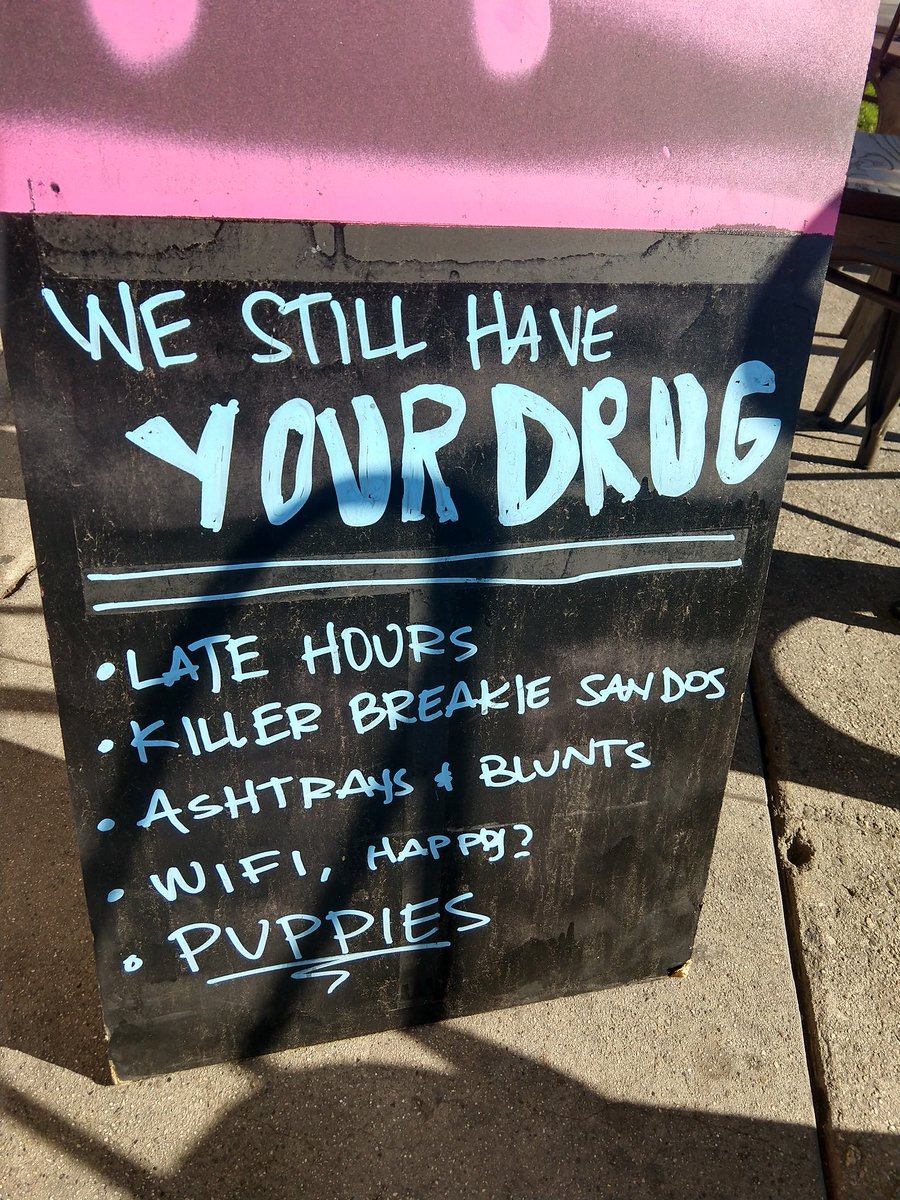 WE STILL HAVE
YOUR DRUG
• LATE HOURS
• KILLER BREAKIE SANDOS
• ASHTRAYS & BLUNTS
• WIFI, HAPPY?
• PUPPIES